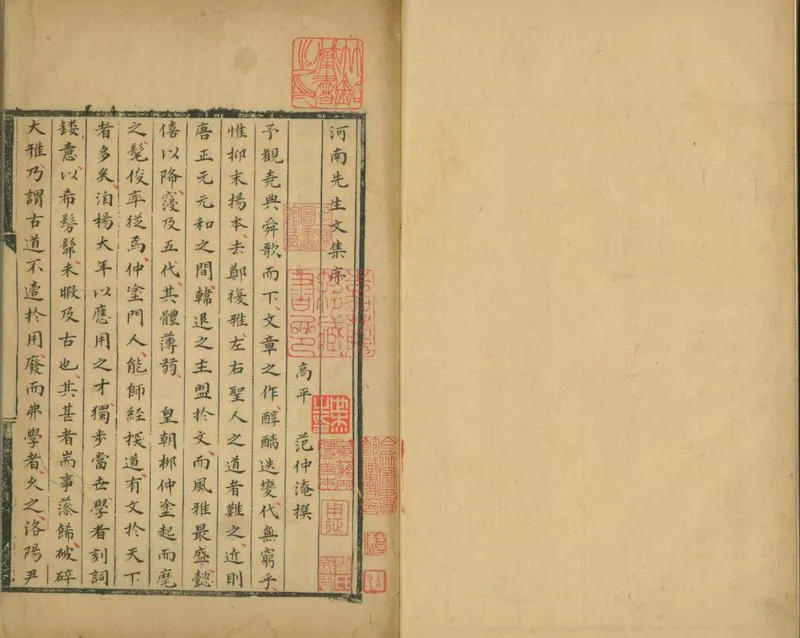 河南先生文集序
高平 范仲淹撰
予觀堯典舜歌而下文章之作醇醨迭變代無窮乎
惟抑末揚本去鄭復雅左右聖人之道者難之近則
唐正元元和之間韓退之主盟於文而風雅最盛懿
僖以降寖及五代其體薄弱 皇朝柳仲塗起而麾
之髦俊率從焉仲塗門人能師經探道有文於天下
者多矣洎楊大年以應用之才獨步當世學者刻詞
鏤意以希髣髴未暇及古也其甚者耑事藻飾破碎
大雅乃謂古道不適於用廢而弗學者久之洛陽尹